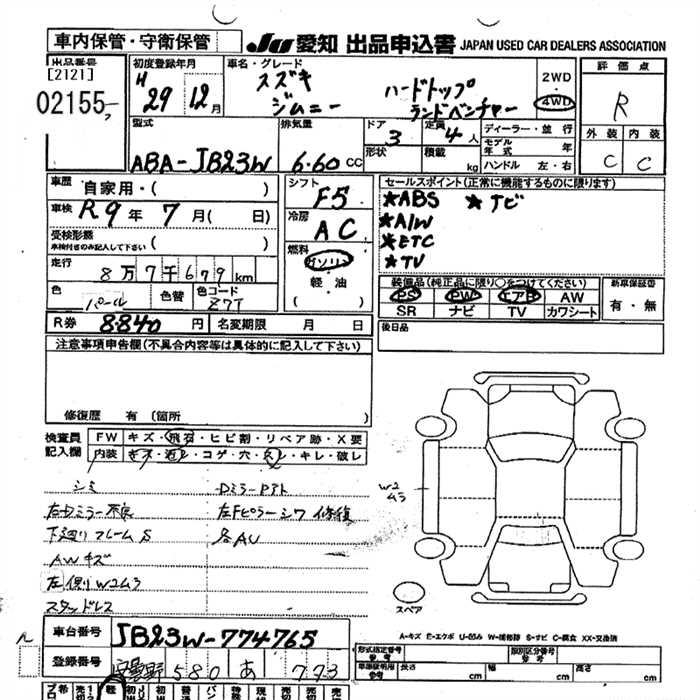 車内保管・守衛保管 JU 愛知 出品申込書 JAPAN USED CAR DEALERS ASSOCIATION
出品番号 初度登録年月 車名・グレード 2WD 評価点
[2121] H 29年 12月 スズキ ハードトップ 4WD R
02155 ジムニー ランドベンチャー
型式 排気量 ドア 定員 ディーラー・並行 外装 内装
ABA-JB23W 6.60 CC 3 4人 モデル年式 年 C C
形状 積載 kg ハンドル 左・右
車歴 自家用・( ) シフト F5 セールスポイント(正常に機能するものに限ります)
車検 R9年 7月 ( 日) 冷房 AC ★ABS ★ナビ
受検形態 ★A/W
車検付きのみ記入して下さい ( ) ★ETC
走行 8万7千679km 燃料 ガソリン ★TV
軽・油
色 パール 色替 色コード Z7T 装備品(純正品に限り○をつけてください) 新車保証書
PS PW エアB AW 有・無
SR ナビ TV カワシート
R券 8840円 名変期限 月 日 後日品
注意事項申告欄(不具合内容等は具体的に記入して下さい)
修復歴 有(箇所 )
検査員 FW キズ・飛石・ヒビ割・リペア跡・X要
記入欄 内装 キズ・コゲ・穴・キレ・破レ
シミ Dミラーアト
右Dミラー不良 左Fピラーシワ修復
下廻りフレームS 各AU
AWキズ W2ムラ
左側リW2ムラ
スタッドレス スペア
A-キズ E-エクボ U-凹み W-補修跡 S-サビ C-腐食 XX-交換済
車台番号 JB23W-774765 形式指定番号 類別区分番号
登録番号 580 あ 773 参考 長さ cm 幅 cm 高さ cm